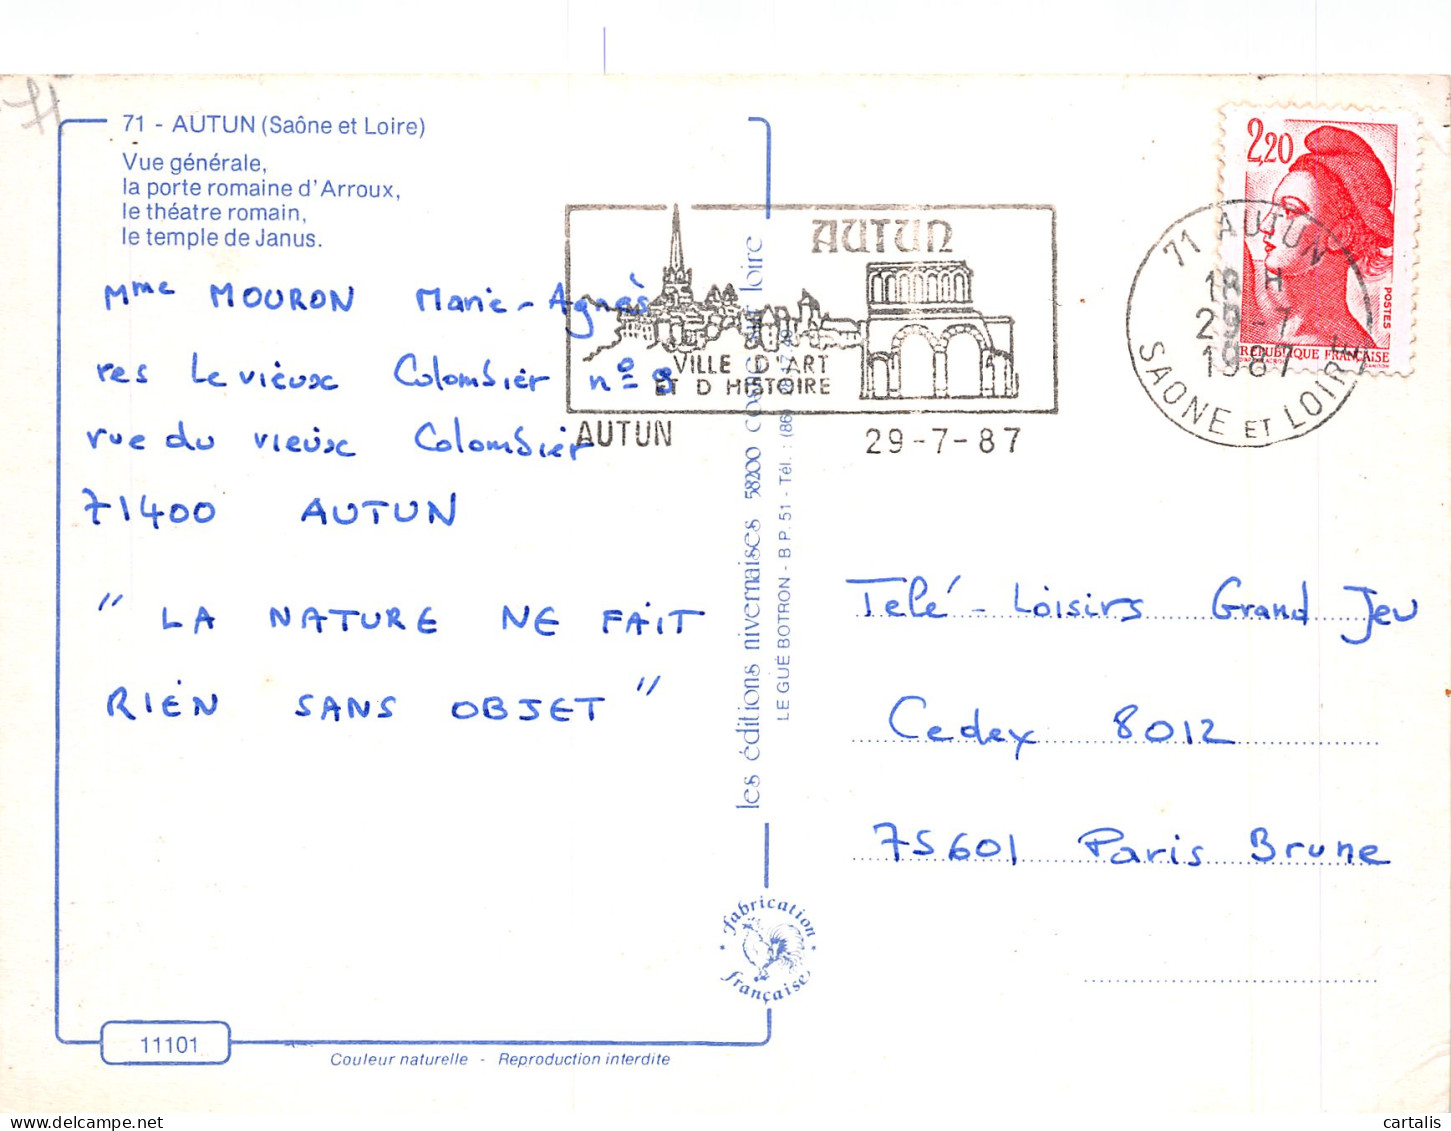 71 - AUTUN (Saône et Loire)
Vue générale,
la porte romaine d'Arroux,
le théatre romain,
le temple de Janus.
Mme MOURON Marie-Agnès
res Le vieux Colombier n° 8
rue du vieux Colombier
71400 AUTUN
" LA NATURE NE FAIT
RIEN SANS OBJET "
AUTUN
VILLE D'ART
ET D HISTOIRE
AUTUN 29-7-87
2,20
POSTES
REPUBLIQUE FRANÇAISE
71 AUTUN
18 H
29-7
1987
SAONE ET LOIRE
les éditions nivernaises 58200 cosne sur loire
LE GUÉ BOTRON - B P. 51 - Tél. : (86)
Telé-Loisirs Grand Jeu
Cedex 8012
75601 Paris Brune
fabrication
française
11101
Couleur naturelle - Reproduction interdite
cartalis